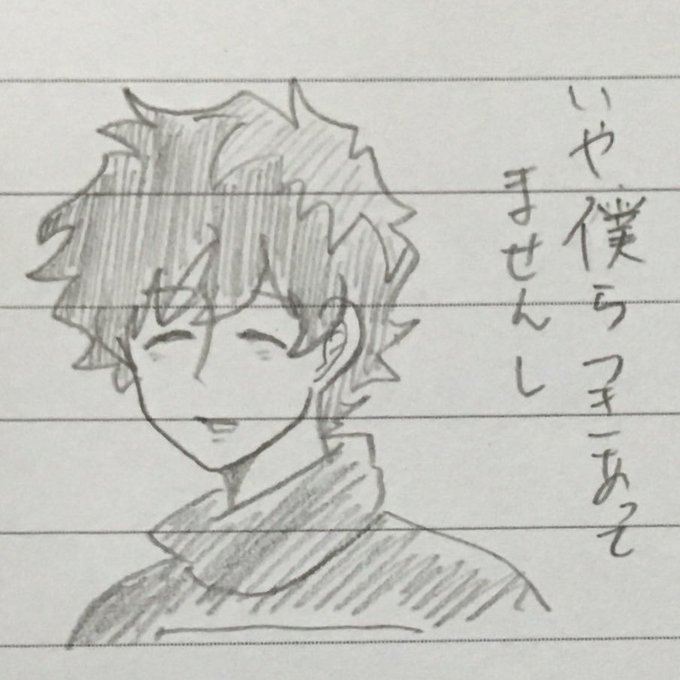 いや僕らつきあって
ませんし